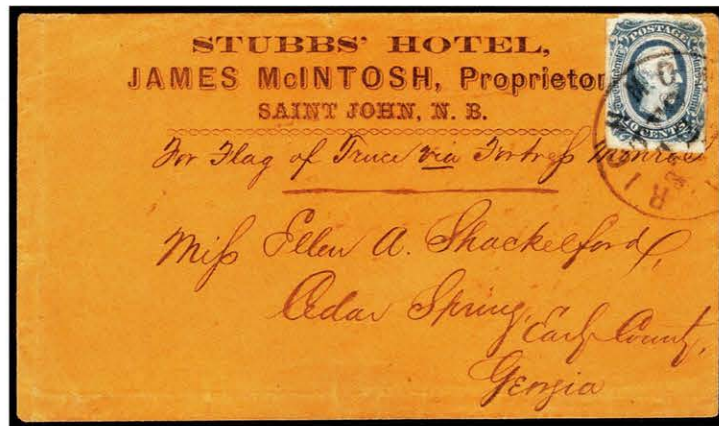 STUBBS' HOTEL,
JAMES McINTOSH, Proprietor
SAINT JOHN, N. B.
POSTAGE
10 CENTS
RICHM
For Flag of Truce via Fortress Monroe
Miss Ellen A. Shackelford,
Cedar Spring,
Early County,
Georgia